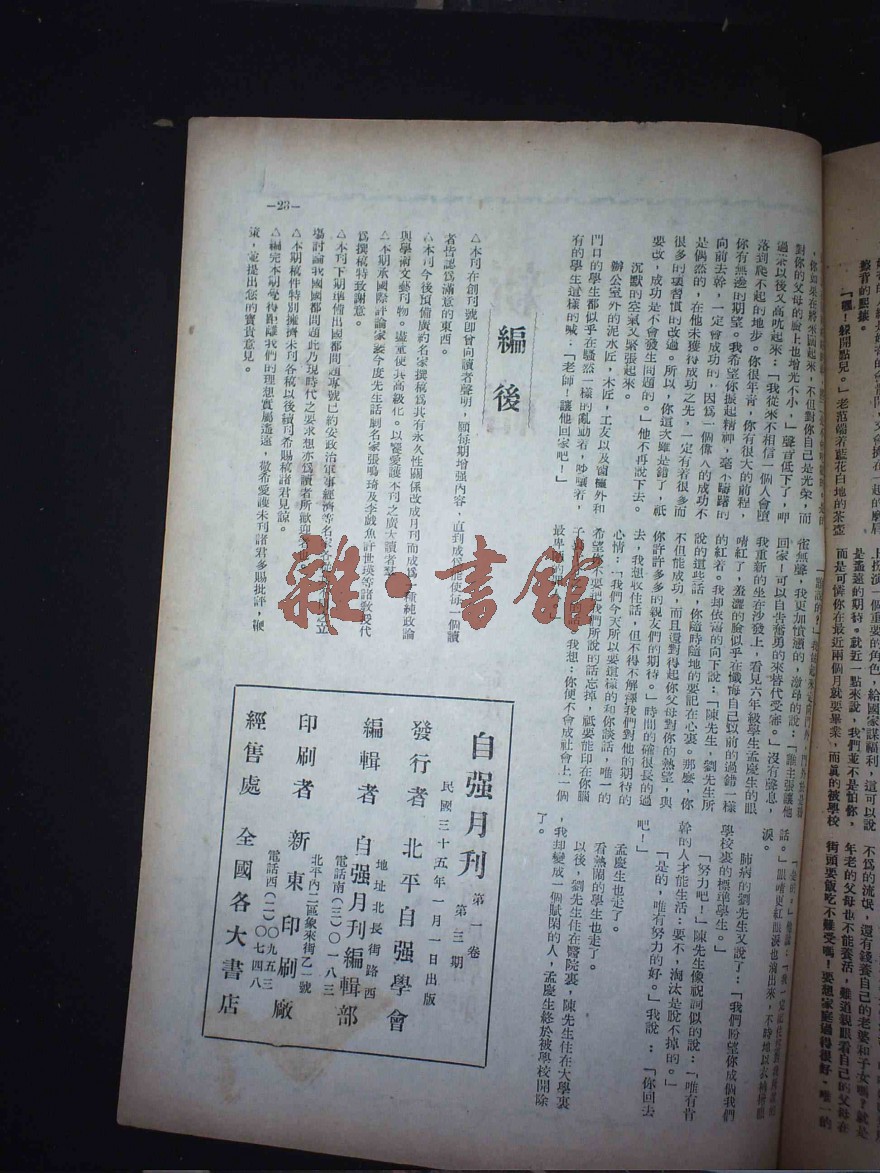 你如果在將來回起來，不但對你自己是光榮，而
對你的父母的臉上也增光不小，」聲音低下了，呷
過茶以後又高吭起來：「我從來不相信一個人會墮
落到爬不起的地步。你很年青，你有很大的前程，
你有無邊的期望。我希望你振起精神，毫不躊躇的
向前去幹，一定會成功的，因爲一個偉人的成功不
是偶然的，在他未獲得成功之先，一定有着很多而
很多的壞習慣的改過。所以，你這次雖是錯了，祇
要改，成功是不會發生問題的。」他不再說下去。
沉默的空氣又緊張起來。
辦公室外的泥水匠，木匠，工友以及窗櫺外和
門口的學生都似乎在騷然一樣的亂動着，吵嚷着，
有的學生這樣的喊：「老師！讓他回家吧！」
雀無聲，我更加憤邁的，激昂的說：「誰主張讓他
回家！可以自告奮勇的來替代受審。」沒有聲息，
我重新的坐在沙發上，看見六年級學生孟慶生的眼
睛紅了，羞澀的臉似乎在懺悔自己以前的過錯一樣
的紅着。我却依舊的向下說：「陳先生，劉先生所
說的這些話，你隨時隨地的要記在心裏。那麼，你
不但能成功，而且還對得起你父母對你的熱望，與
你許許多多的親友們的期待。」時間的確很長的過
去，我想收住話，但不得不解釋我們對他的期待的
心情：「我們今天所以要這樣的和你談話，唯一的
希望你不要把我們所說的話忘掉，祇要能印在你腦
子
我想：你便不會成社會上一個
最
話。」眼睛更紅眼淚也滴出來，不時地以衣袖拂眼
淚。
肺病的劉先生又說了：「我們盼望你成個我們
學校裏的標準學生。」
「努力吧！」陳先生像祝詞似的說：「唯有肯
幹的人才能生活：要不，淘汰是說不掉的。」
「是的，唯有努力的好。」我說：「你回去
吧！」
孟慶生也走了。
看熱鬧的學生也走了。
以後，劉先生住在醫院裏，陳先生住在大學裏
，我却變成一個賦閑的人，孟慶生終於被學校開除
了。
編後
△本刊在創刊號卽曾向讀者聲明，願每期增强內容，直到成爲能使每一個讀
者皆認爲滿意的東西。
△本刊今後預備廣約名家撰稿爲共有永久性關係改成月刊而成爲一種純政論
與學術文藝刊物。盡重使其高級化。以饗愛護本刊之廣大讀者
△本期承國際評論家婁今度先生話劇名家張鳴琦及李戲魚許世瑛等諸敎授代
爲撰稿特致謝意。
△本刊下期準備出國都問題專號已約妥政治軍事經濟等名家各
立
塲討論我國國都問題此乃現時代之要求想亦爲讀者所歡迎
△本期稿件特別擁擠未刊各稿以後續刊希賜稿諸君見諒。
△編完本期覺得距離我們的理想實屬遙遠，敬希愛護本刊諸君多賜批評，鞭
策，並提出您的寶貴意見。
—23—
自强月刊 第一卷 第三期
民國三十五年一月一日出版
發行者 北平自强學會
地址北長街路西
編輯者 自强月刊編輯部
電話南（三）〇一八三
印刷者 新東印刷廠
北平內二區象來街乙一號
電話西（二）〇〇九五三
〇七四八
經售處 全國各大書店
「喂！躲開點兒。」老范端着藍花白地的茶壺
上扮演一個重要的角色，給國家謀福利，這可以說
是遙遠的期待。就近一點來說，我們並不是怕你，
而是可憐你在最近兩個月就要畢業，而眞的被學校
不爲的流氓，還有錢養自己的老婆和子女嗎？就是
年老的父母也不能養活，難道親眼看自己的父母在
街頭要飯吃不難受嗎！要想家庭過得很好，唯一的
雜·書館